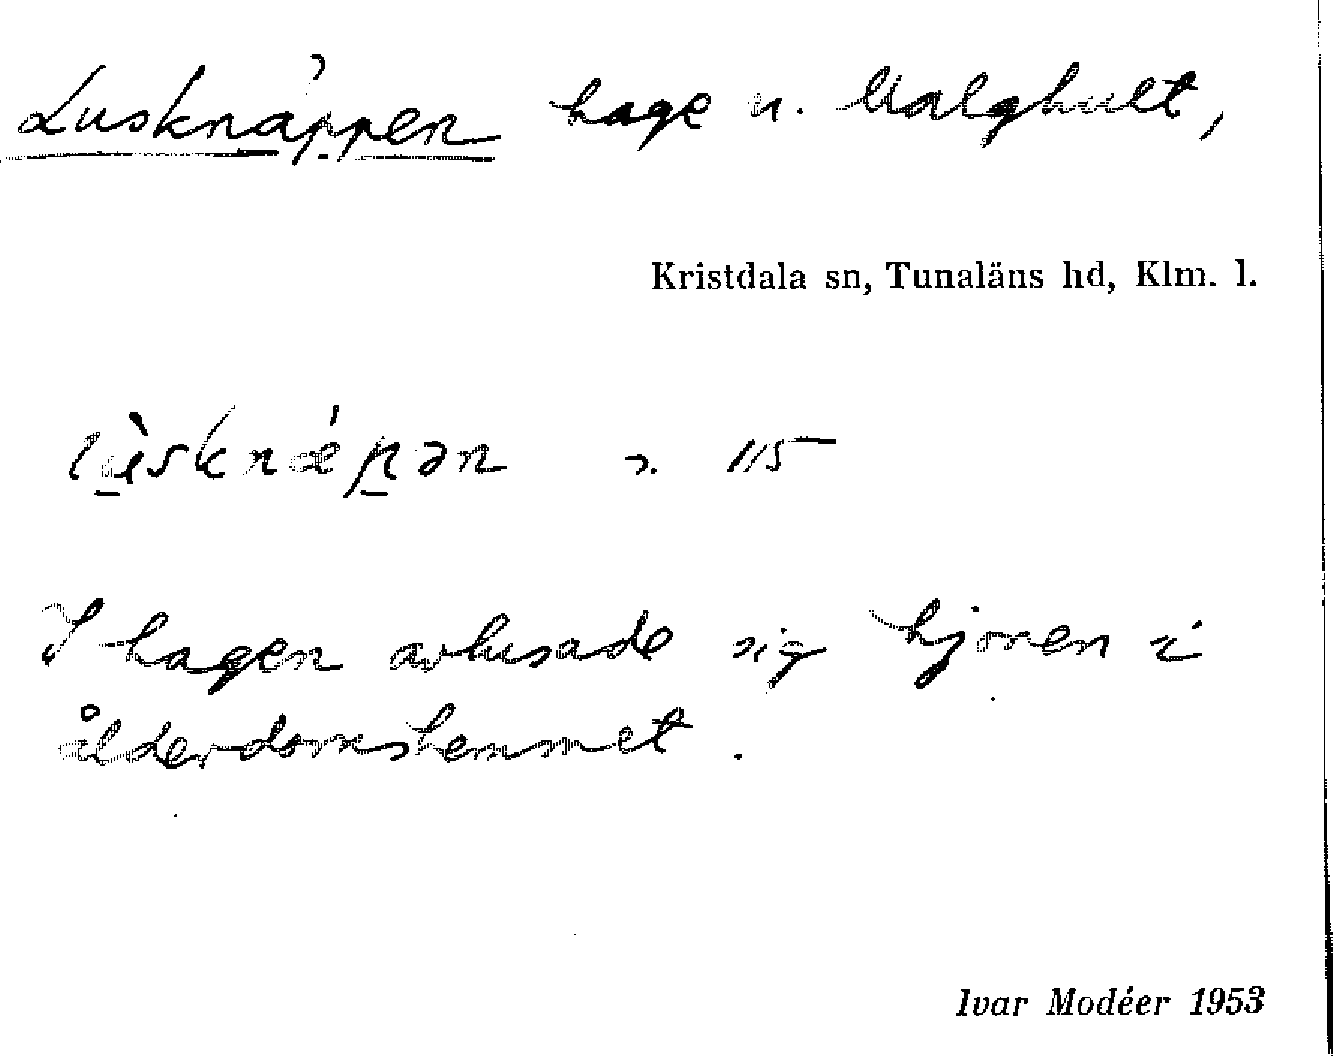 Lusknäppen hage u. Malghult,
Kristdala sn, Tunaläns hd, Klm. l.
lùsknǽpən 115
I hagen avlusade sig hjonen i
ålderdomshemmet.
Ivar Modéer 1953